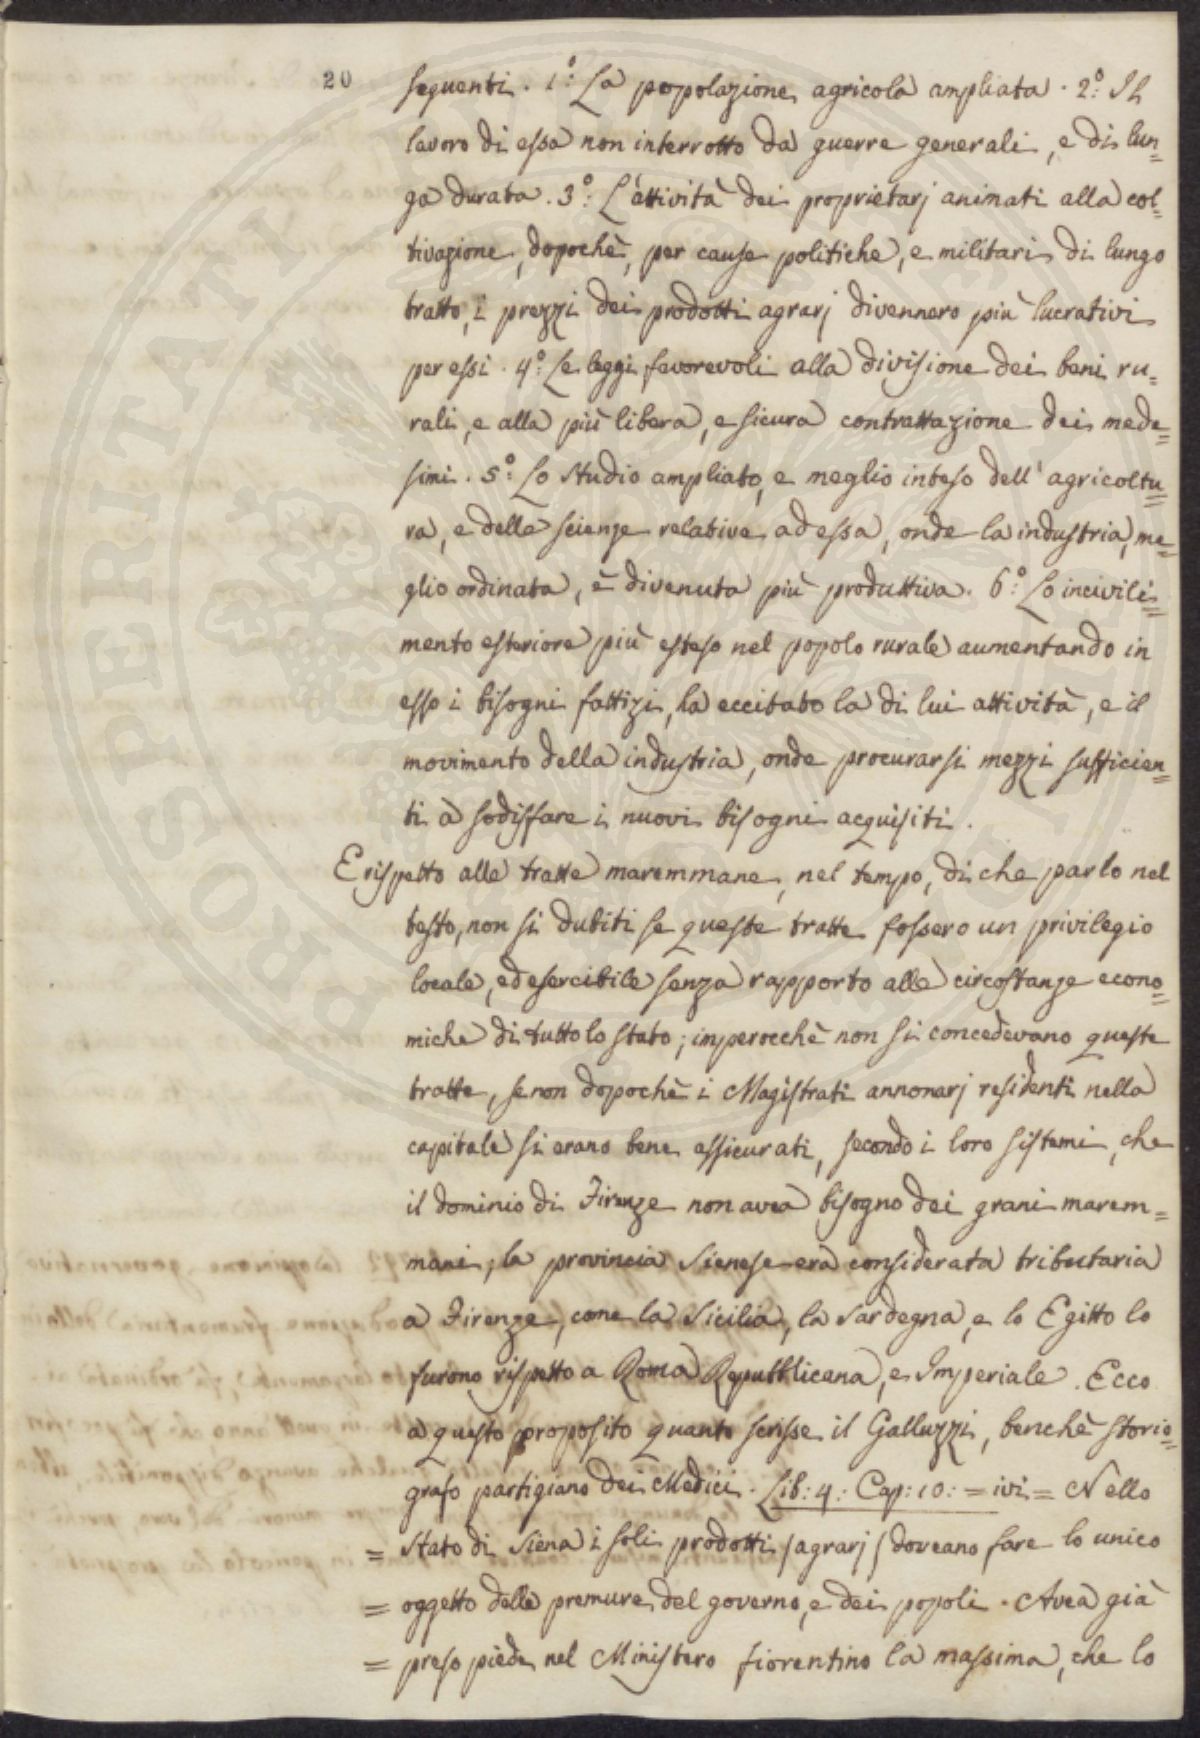 20
seguenti. 1.° La popolazione agricola ampliata. 2.° Il
lavoro di essa non interrotto da guerre generali, e di lun=
ga durata. 3.° L'attività dei proprietarj animati alla col=
tivazione, dopochè, per cause politiche, e militari di lungo
tratto, i prezzi dei prodotti agrarj divennero più lucrativi
per essi. 4.° Le leggi favorevoli alla divisione dei beni ru=
rali, e alla più libera, e sicura contrattazione dei mede=
simi. 5.° Lo studio ampliato, e meglio inteso dell'agricoltu=
ra, e delle scienze relative ad essa, onde la industria, me=
glio ordinata, è divenuta più produttiva. 6.° Lo incivili=
mento esteriore più esteso nel popolo rurale aumentando in
esso i bisogni fattizi, ha eccitato la di lui attività, e il
movimento della industria, onde procurarsi mezzi sufficien=
ti a sodisfare i nuovi bisogni acquisiti.
E rispetto alle tratte maremmane, nel tempo, di che parlo nel
testo, non si dubiti se queste tratte fossero un privilegio
locale, ed esercibile senza rapporto alle circostanze econo=
miche di tutto lo stato; imperocchè non si concedevano queste
tratte, se non dopochè i Magistrati annonarj residenti nella
capitale si erano bene assicurati, secondo i loro sistemi, che
il dominio di Firenze non avea bisogno dei grani marem=
mani; la provincia Sienese era considerata tributaria
a Firenze, come la Sicilia, la Sardegna, e lo Egitto lo
furono rispetto a Roma Repubblicana, e Imperiale. Ecco
a questo proposito quanto scrisse il Galluzzi, benchè storio=
grafo partigiano dei Medici. Lib: 4: Cap: 10: = ivi = Nello
= stato di Siena i soli prodotti /agrarj/ doveano fare lo unico
= oggetto delle premure del governo, e dei popoli. Avea già
= preso piede nel Ministero fiorentino la massima, che lo
PROSPERITATI